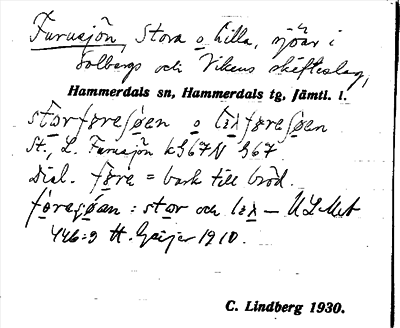 Furusjön, Stora o Lilla, sjöar i
Solbergs och Vikens skifteslag,
Hammerdals sn, Hammerdals tg, Jämtl. l.
storføreſøen o lιλføreſøen
St., L. Furusjön k 367 N 367
Dial. føre = bark till bröd.
føresøan : stor och lιλ — ULMA
446:9 H. Geijer 1910.
C. Lindberg 1930.